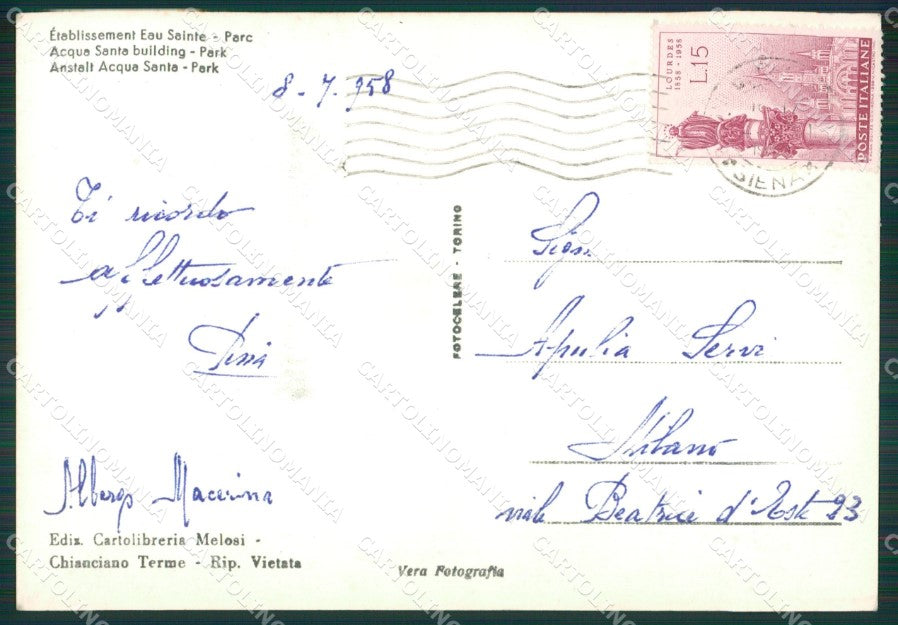 Établissement Eau Sainte - Parc
Acqua Santa building - Park
Anstalt Acqua Santa - Park
8-7-958
LOURDES
1858 - 1958
L.15
POSTE ITALIANE
SIENA
Ti ricordo
affettuosamente
Pina
Albergo Macerina
Ediz. Cartolibreria Melosi -
Chianciano Terme - Rip. Vietata
FOTOCELERE - TORINO
Vera Fotografia
Sign.
Apulia Servi
Milano
viale Beatrice d'Este 23
CARTOLINOMANIA